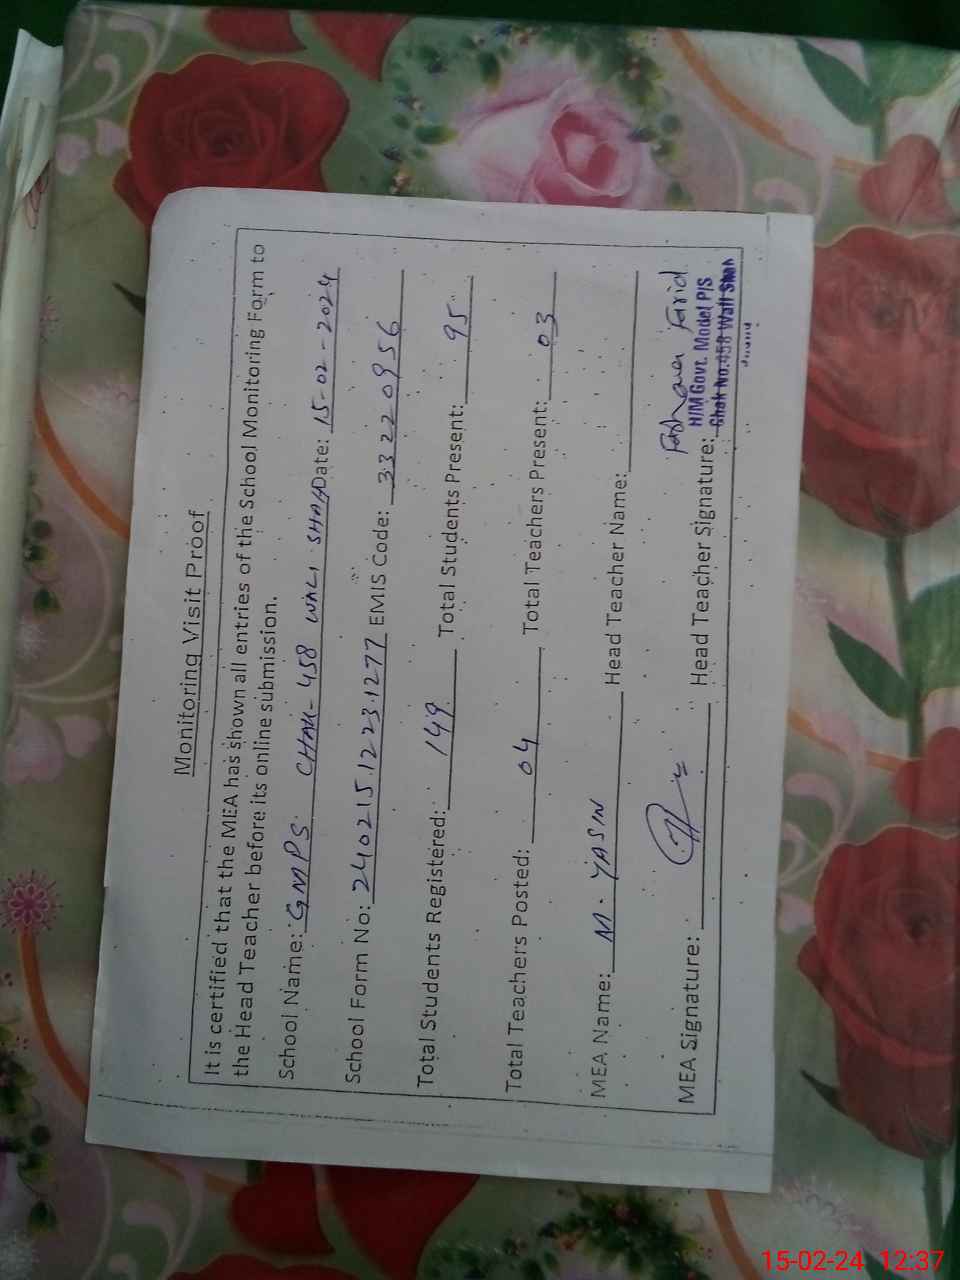 Monitoring Visit Proof
It is certified that the MEA has shown all entries of the School Monitoring Form to
the Head Teacher before its online submission.
School Name: GMPS CHAK-458 WALI SHAH Date: 15-02-2024
School Form No: 240215.1223.1277 EMIS Code: 33220956
Total Students Registered: 149 Total Students Present: 95
Total Teachers Posted: 04 Total Teachers Present: 03
MEA Name: M. YASIN Head Teacher Name:
Farid
H/M Govt. Model P/S
MEA Signature: Head Teacher Signature: Chak No.458 Wali Shah
15-02-24 12:37